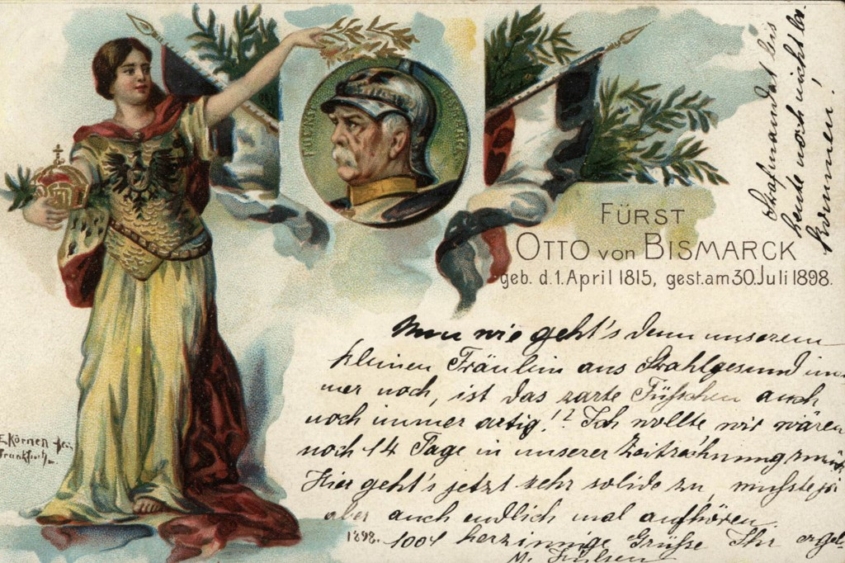 FÜRST
OTTO von BISMARCK
geb. d. 1. April 1815, gest. am 30. Juli 1898.
heute noch nicht
kommen!
Nun wie geht's denn unserem
kleinen Fräulein aus Stahlgesund im
mer noch, ist das zarte Füsschen auch
noch immer artig!? Ich wollte wir wären
noch 14 Tage in unserer Zeitrechnung zurück
Hier geht's jetzt sehr solide zu, musste ja
aber auch endlich mal aufhören.
1898. 1001 herzinnige Grüsse Ihr
E. Körner
Frankfurt